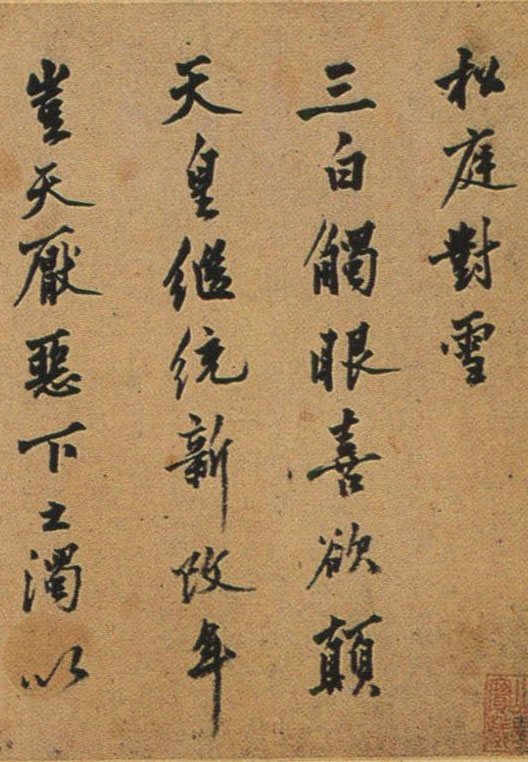 松庭對雪
三白觸眼喜欲顛
天皇繼統新改年
豈天厭惡下土濁以